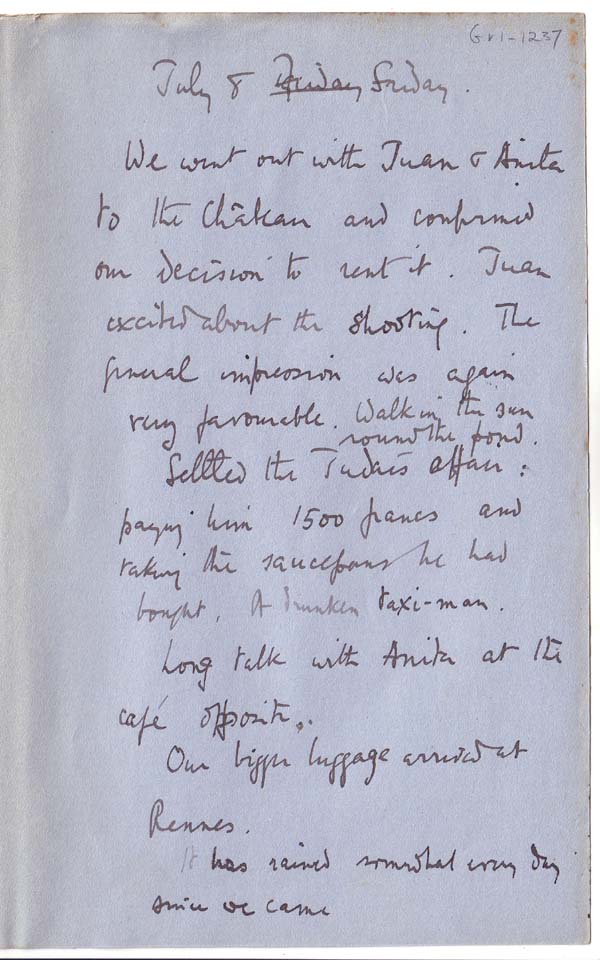 Gv1-1237
July 8 Friday Friday.
We went out with Juan & Anita
to the Château and confirmed
our decision to rent it. Juan
excited about the shooting. The
general impression was again
very favourable. Walk in the sun
round the pond.
Settled the affair:
paying him 1500 francs and
taking the saucepans he had
bought. A drunken taxi-man.
Long talk with Anita at the
café opposite.
Our bigger luggage arrived at
Rennes.
It has rained somewhat every day
since we came